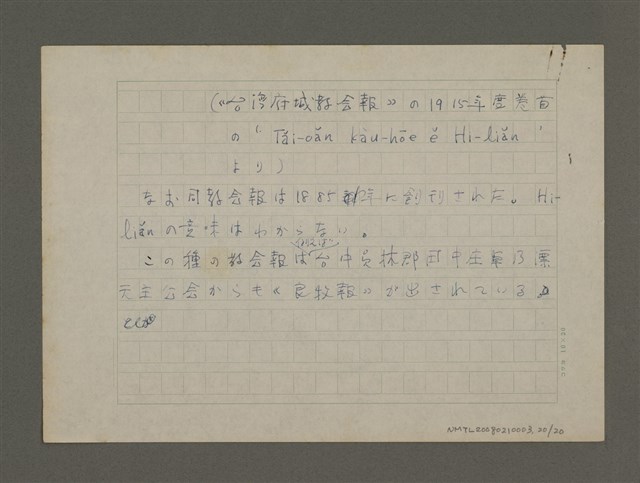 (《台湾府城教会報》の1915年度巻首
の‘Tâi-oân kàu-hōe ê Hi-liân’
より)
なお同教会報は1885年に創刊された。Hi-
liânの意味はわからない。
この種の教会報は台中員林郡田中庄草乃栗
天主公会からも《良牧報》が出されている
NMTL20080210003 20/20